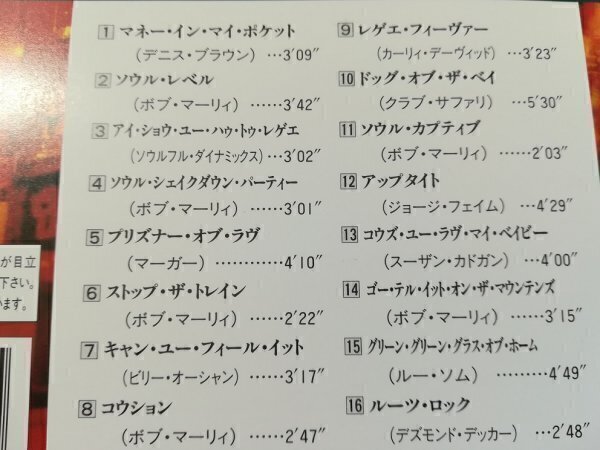 1 マネー・イン・マイ・ポケット
（デニス・ブラウン）…3′09″
2 ソウル・レベル
（ボブ・マーリィ）……3′42″
3 アイ・ショウ・ユー・ハゥ・トゥ・レゲエ
（ソウルフル・ダイナミックス）…3′02″
4 ソウル・シェイクダウン・パーティー
（ボブ・マーリィ）……3′01″
5 プリズナー・オブ・ラヴ
（マーガー）…………4′10″
6 ストップ・ザ・トレイン
（ボブ・マーリィ）……2′22″
7 キャン・ユー・フィール・イット
（ビリー・オーシャン）……3′17″
8 コウション
（ボブ・マーリィ）……2′47″
9 レゲエ・フィーヴァー
（カーリィ・デーヴィッド）…3′23″
10 ドッグ・オブ・ザ・ベイ
（クラブ・サファリ）…5′30″
11 ソウル・カプティブ
（ボブ・マーリィ）……2′03″
12 アップタイト
（ジョージ・フェイム）…4′29″
13 コウズ・ユー・ラヴ・マイ・ベイビー
（スーザン・カドガン）…4′00″
14 ゴー・テル・イット・オン・ザ・マウンテンズ
（ボブ・マーリィ）……3′15″
15 グリーン・グリーン・グラス・オブ・ホーム
（ルー・ソム）………4′49″
16 ルーツ・ロック
（デズモンド・デッカー）…2′48″
が目立
下さい。
います。